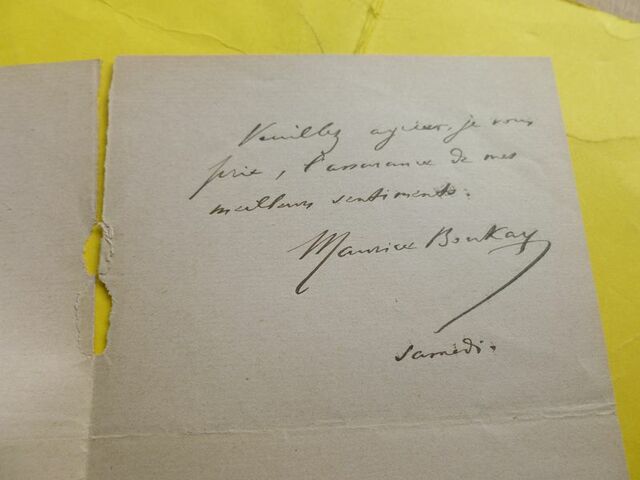 Veuillez agréer, je vous
prie, l'assurance de mes
meilleurs sentiments.
Maurice Boukay
samedi.